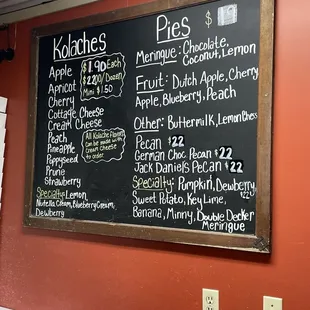 Kolaches
$1.90 Each
$22.00/Dozen
Mini $1.50
Apple
Apricot
Cherry
Cottage Cheese
Cream Cheese
Peach
Pineapple
Poppyseed
Prune
Strawberry
All Kolache Flavors
can be made with
cream cheese
to order
Specialty: Lemon
Nutella Cream, Blueberry Cream,
Dewberry
Pies $19
Meringue: Chocolate,
Coconut, Lemon
Fruit: Dutch Apple, Cherry
Apple, Blueberry, Peach
Other: Buttermilk, Lemon Chess
Pecan $22
German Choc. Pecan $22
Jack Daniels Pecan $22
Specialty: Pumpkin, Dewberry, $22
Sweet Potato, Key Lime,
Banana, Minny, Double Decker
Meringue